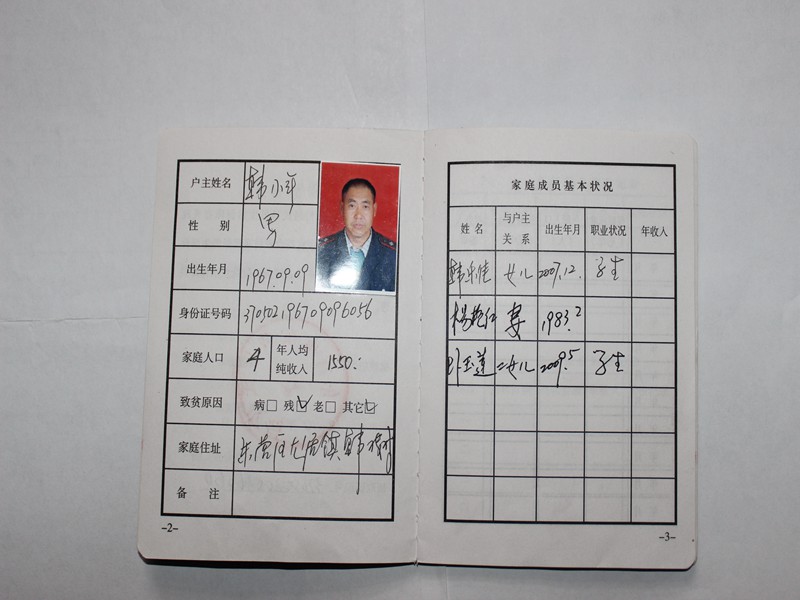 户主姓名 韩小军
性 别 男
出生年月 1967.09.09
身份证号码 370502196709096056
家庭人口 4 年人均纯收入 1550.
致贫原因 病□ 残☑ 老□ 其它☑
家庭住址
备 注
-2-
家庭成员基本状况
姓名 与户主关系 出生年月 职业状况 年收入
女儿 2007.12. 学生
妻 1983.2
二女儿 2009.5 学生
-3-